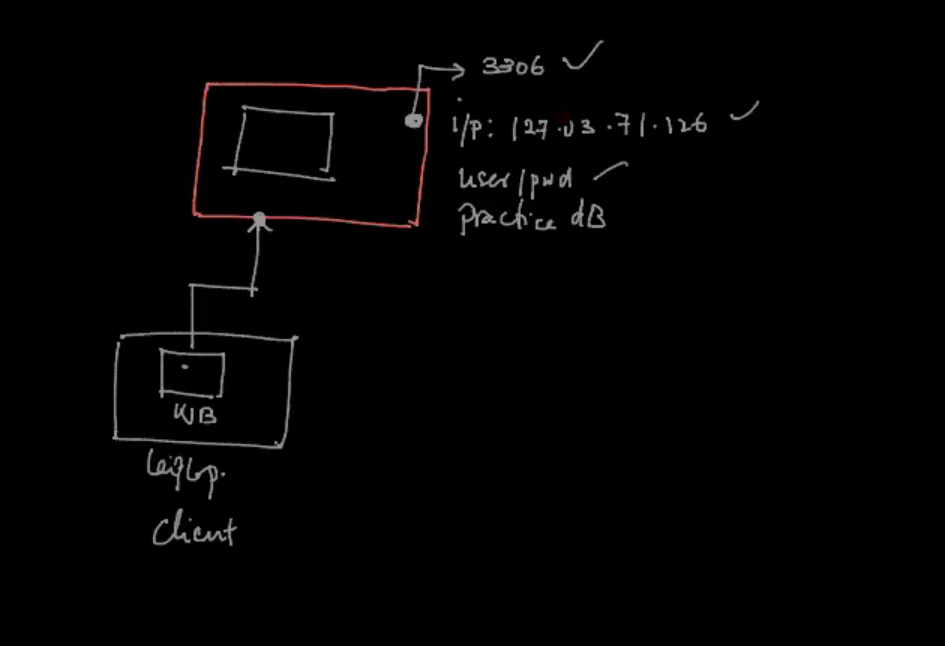 3306
i/p: 127.03.71.126
user/pwd
Practice dB
WB
laptop.
Client